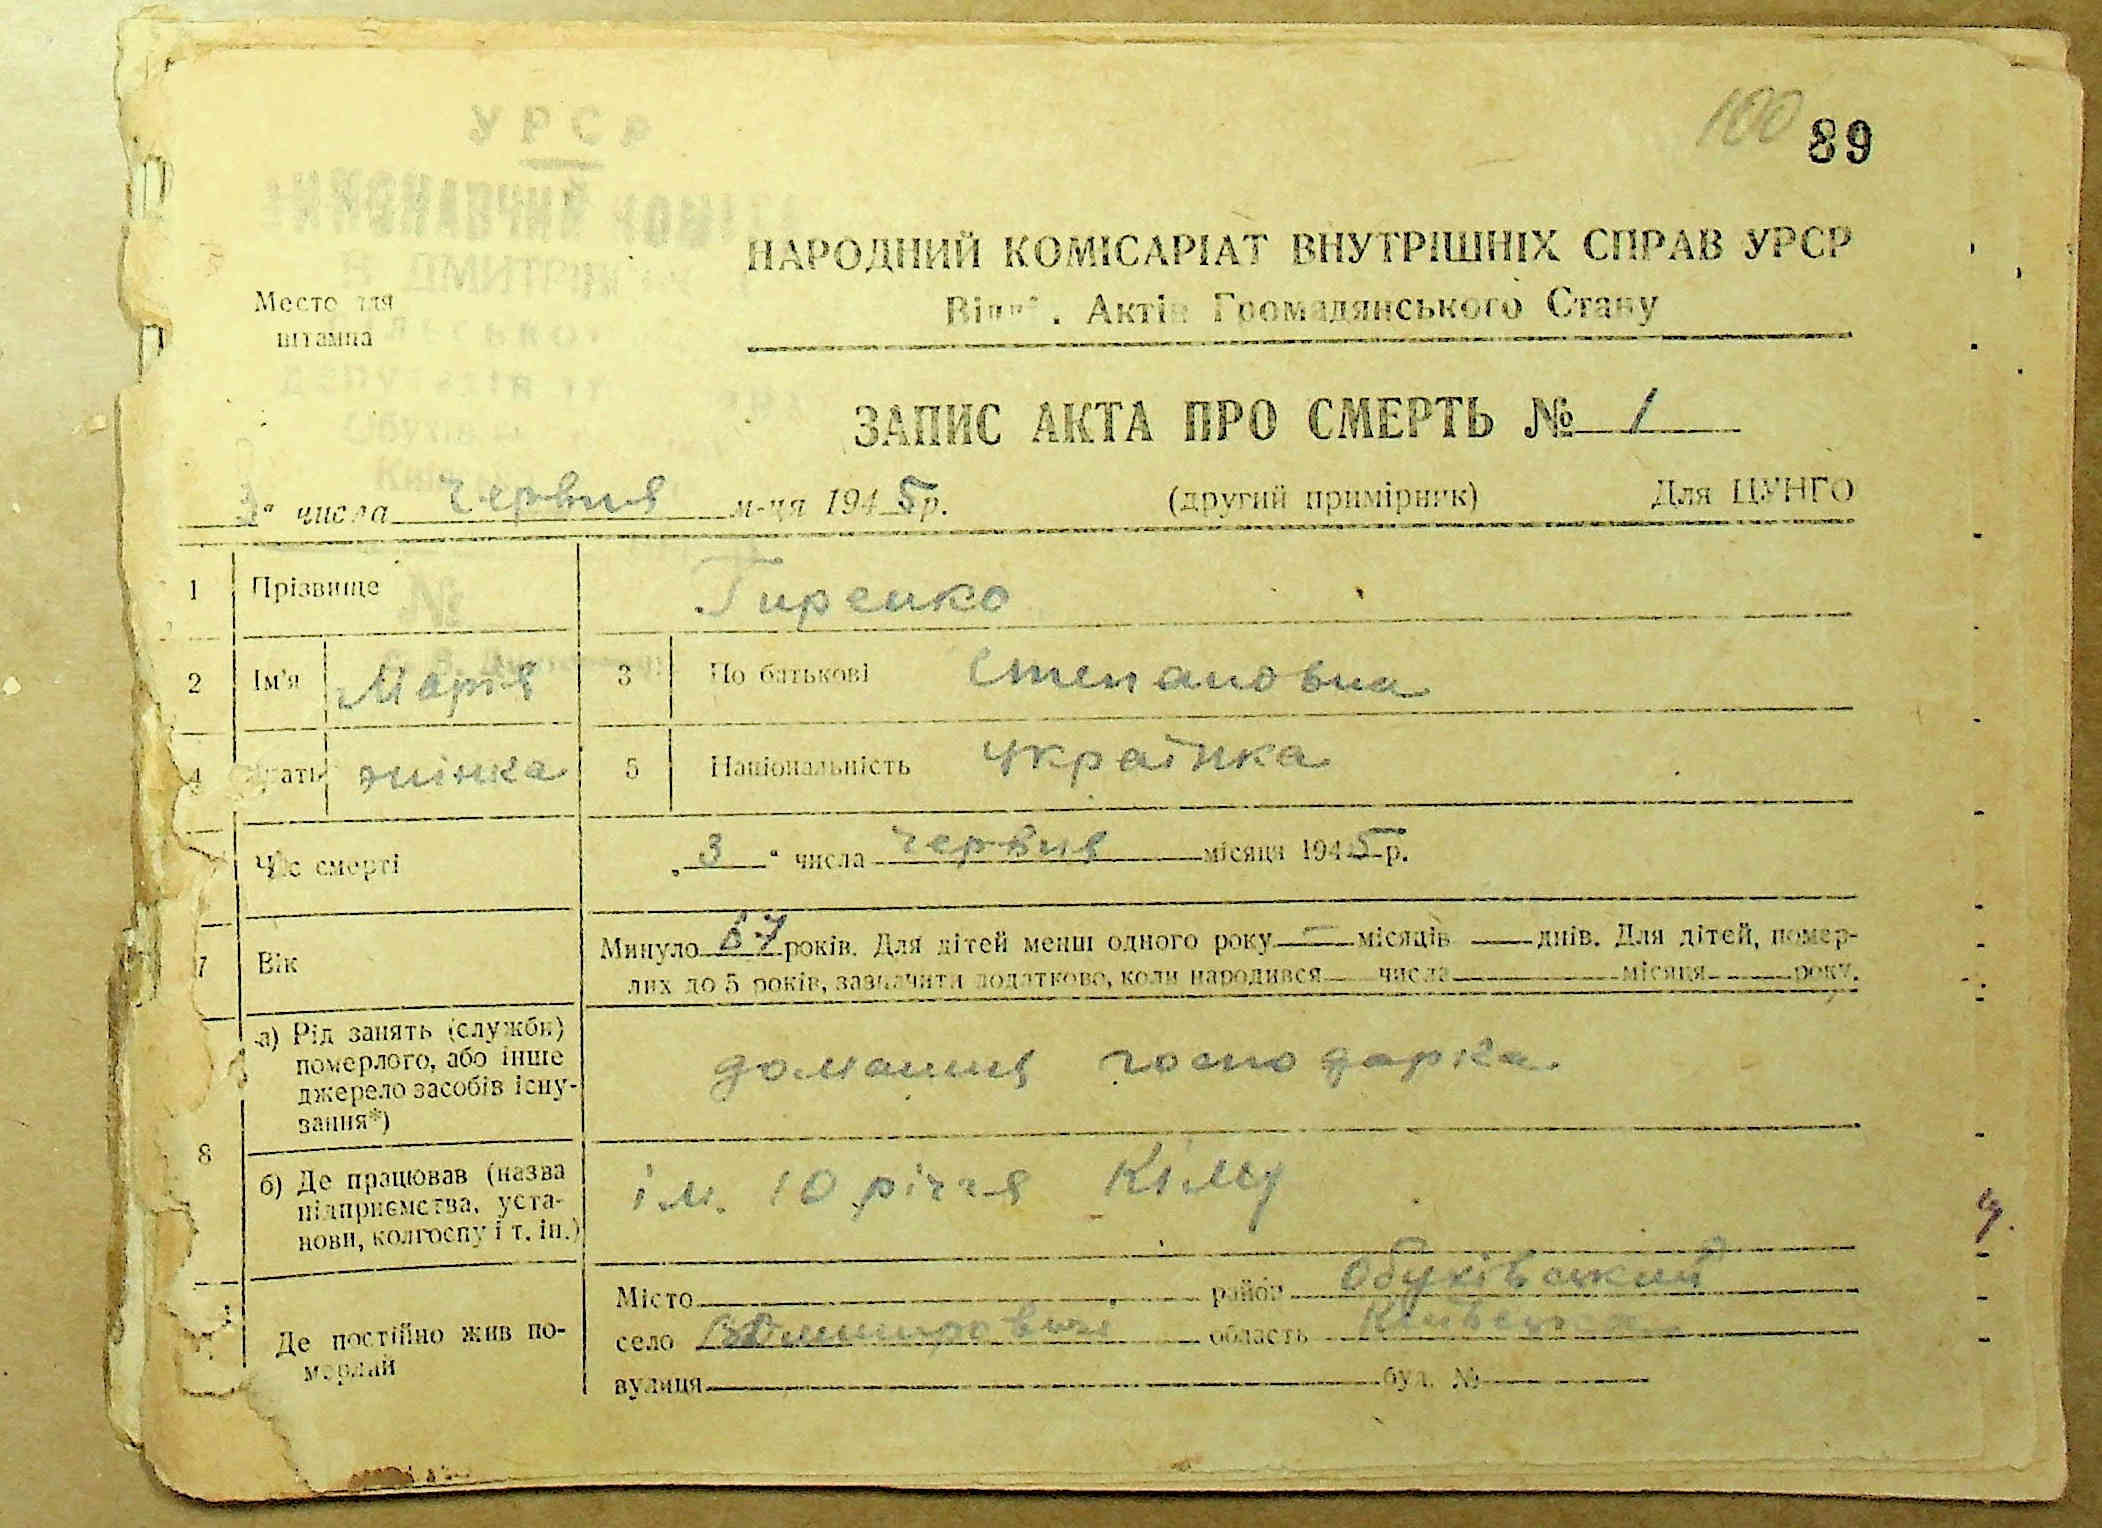 100 89
УРСР
НАРОДНИЙ КОМІСАРІАТ ВНУТРІШНІХ СПРАВ УРСР
Актів Громадянського Стану
Место для
штампа
ЗАПИС АКТА ПРО СМЕРТЬ № 1
3" числа червня м-ця 1945 р. (другий примірник) Для ЦУНГО
1 Прізвище Гиренко
2 Ім'я Марія 3 По батькові Степановна
4 жінка 5 Національність українка
Час смерті „3" числа червня місяця 1945 р.
7 Вік Минуло 67 років. Для дітей менш одного року — місяців — днів. Для дітей, помер-
лих до 5 років, зазначити додатково, коли народився числа місяця року.
8 а) Рід занять (служби)
померлого, або інше
джерело засобів існу-
вання*) домашня господарка
б) Де працював (назва
підприємства, уста-
нови, колгоспу і т. ін.) ім. 10 річчя Кіму
Де постійно жив по-
мерлий
Місто район Обухівський
село область Київська
вулиця буд. №